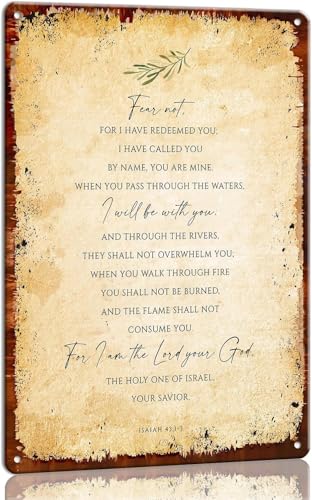 Fear not,
FOR I HAVE REDEEMED YOU;
I HAVE CALLED YOU
BY NAME, YOU ARE MINE.
WHEN YOU PASS THROUGH THE WATERS,
I will be with you,
AND THROUGH THE RIVERS,
THEY SHALL NOT OVERWHELM YOU;
WHEN YOU WALK THROUGH FIRE
YOU SHALL NOT BE BURNED,
AND THE FLAME SHALL NOT
CONSUME YOU.
For I am the Lord your God,
THE HOLY ONE OF ISRAEL,
YOUR SAVIOR.
ISAIAH 43:1-3